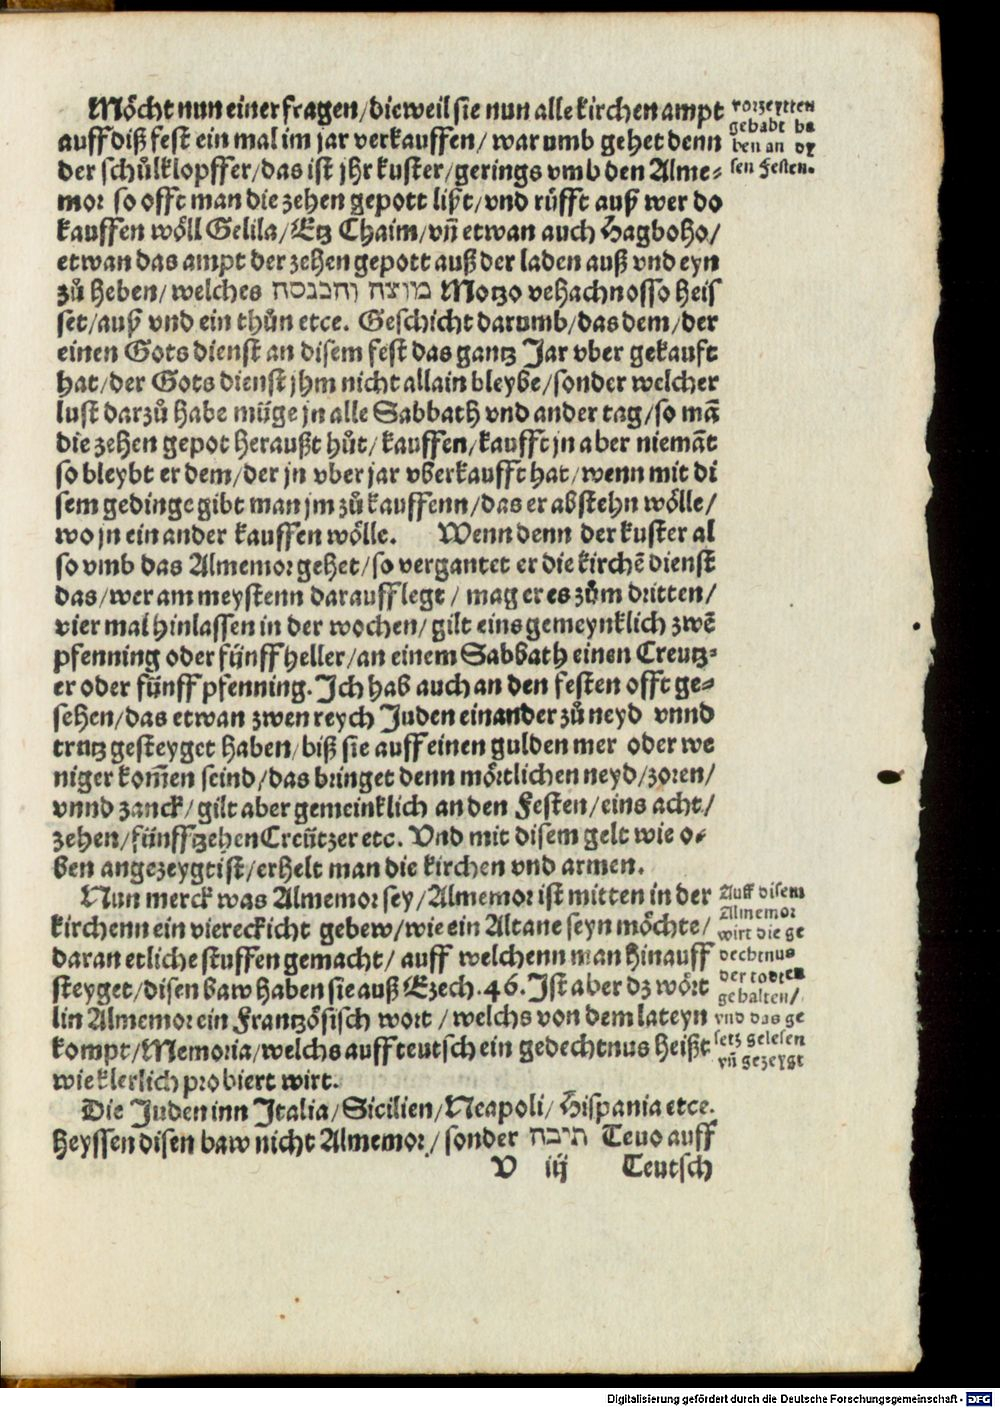 Möcht nun einer fragen/dieweil sie nun alle kirchen ampt
auff diß fest ein mal im jar verkauffen/ warumb gehet denn
der schůlklopffer/das ist jhr kuster/gerings vmb den Alme-
mor so offt man die zehen gepott lißt/vnd růfft auß wer do
kauffen wöll Gelila/Etz Chaim/vñ etwan auch Hagboho/
etwan das ampt der zehen gepott auß der laden auß vnd eyn
zů heben/welches מוצה והכנסה Motzo vehachnosso heis
set/auß vnd ein thůn etce. Geschicht darumb/das dem/der
einen Gots dienst an disem fest das gantz Jar vber gekauft
hat/der Gots dienst jhm nicht allain bleybe/sonder welcher
lust darzů habe müge jn alle Sabbath vnd ander tag/so mã
die zehen gepot heraußt hůt/kauffen/kaufft jn aber niemãt
so bleybt er dem/der jn vber jar vberkaufft hat/wenn mit di
sem gedinge gibt man jm zů kauffenn/das er abstehn wölle/
wo jn ein ander kauffen wölle. Wenn denn der kuster al
so vmb das Almemor gehet/so vergantet er die kirchẽ dienst
das/wer am meystenn darauff legt/ mag er es zům dritten/
vier mal hinlassen in der wochen/gilt eins gemeynklich zwẽ
pfenning oder fünff heller/an einem Sabbath einen Creutz-
er oder fünff pfenning. Ich hab auch an den festen offt ge-
sehen/das etwan zwen reych Juden einander zů neyd vnnd
trutz gesteyget haben/biß sie auff einen gulden mer oder we
niger kom̃en seind/das bringet denn mörtlichen neyd/zoren/
vnnd zanck/gilt aber gemeinklich an den Festen/eins acht/
zehen/fünffzehen Creützer etc. Vnd mit disem gelt wie o-
ben angezeygt ist/erhelt man die kirchen vnd armen.
Nun merck was Almemor sey/Almemor ist mitten in der
kirchenn ein viereckicht gebew/wie ein Altane seyn möchte/
daran etliche stuffen gemacht/ auff welchenn man hinauff
steyget/disen baw haben sie auß Ezech.46. Ist aber dz wört
lin Almemor ein Frantzösisch wort/welchs von dem lateyn
kompt/Memoria/welchs auff teutsch ein gedechtnus heißt
wie klerlich probiert wirt.
Die Juden inn Italia/Sicilien/Neapoli/Hispania etce.
heyssen disen baw nicht Almemor/sonder תיבה Tevo auff
V iij Teutsch
vorzeytten
gehabt ha
ben an dy
sen Festen.
Auff disem
Almemor
wirt die ge
dechtnus
der todten
gehalten/
vnd das ge
setz gelesen
vñ gezeygt
Digitalisierung gefördert durch die Deutsche Forschungsgemeinschaft - DFG